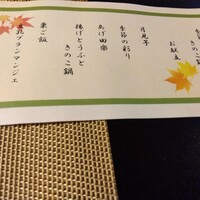 お献立
月見芋
季節の彩り
あげ田楽
揚げどうふと
きのこ鍋
栗ご飯
豆乳ブランマンジェ